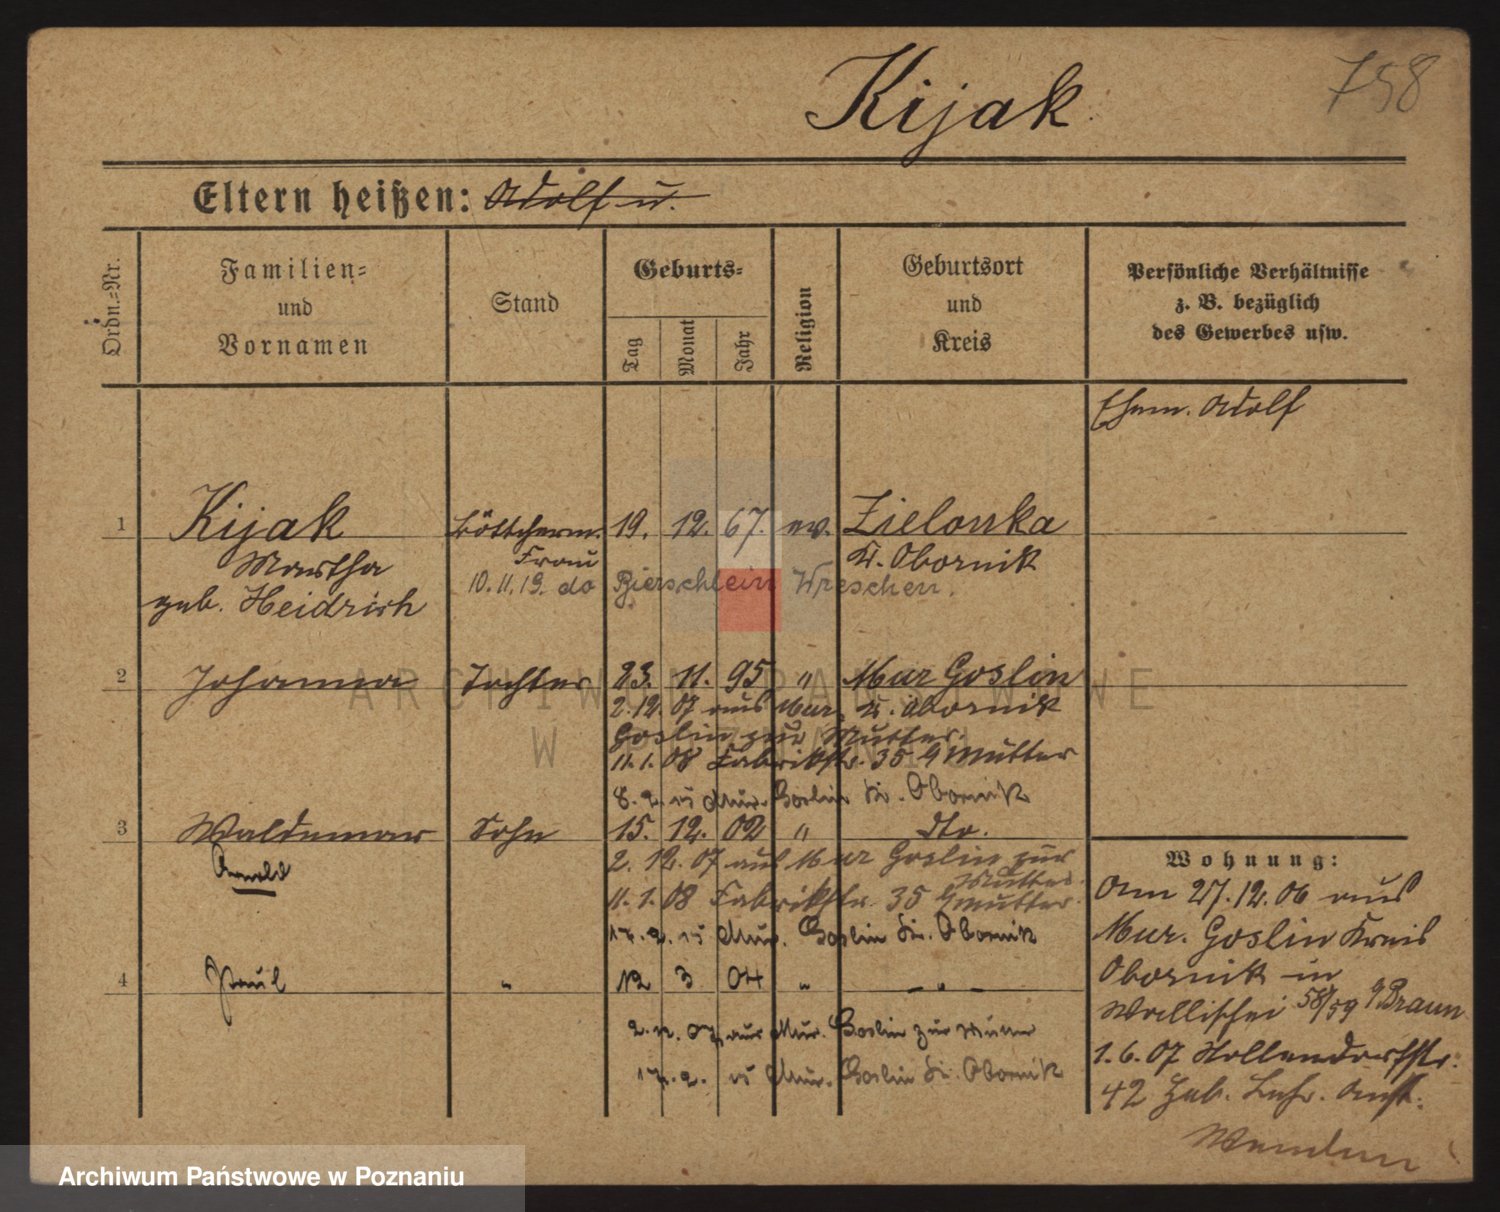 Kijak
758
Eltern heißen: Adolf u.
Ordn.-Nr.
Familien- und Vornamen
Stand
Geburts-
Tag
Monat
Jahr
Religion
Geburtsort und Kreis
Persönliche Verhältnisse z. B. bezüglich des Gewerbes usw.
Ehem. Adolf
1 Kijak Böttcherm. 19. 12. 67. ev. Zielonka
Martha Frau K. Obornik
10.11.19. do Bierschlein Wreschen.
geb. Heidrich
2 Johanna Tochter 23. 11. 95 " Mur Goslin
2.12.07 aus Mur. K. Obornik
Goslin zur Mutter.
11.1.08 Fabrikstr. 35 Mutter
8.2. n Mur. Goslin Kr. Obornik
3 Waldemar Sohn 15. 12. 02 " dto.
Arnold
2. 12. 07 aus Mur Goslin zur
Mutter.
11.1.08 Fabrikstr. 35 Mutter.
17.2. n Mur. Goslin Kr. Obornik
4 Paul " 12 3 04 " - " -
2.12.07 aus Mur. Goslin zur Mutter
17.2. n Mur. Goslin Kr. Obornik
Wohnung:
Am 27.12.06 aus
Mur. Goslin Kreis
Obornik in
Wallischei 58/59 Braun
1.6.07 Hollendorfstr.
42
ARCHIWUM PAŃSTWOWE
W POZNANIU
Archiwum Państwowe w Poznaniu